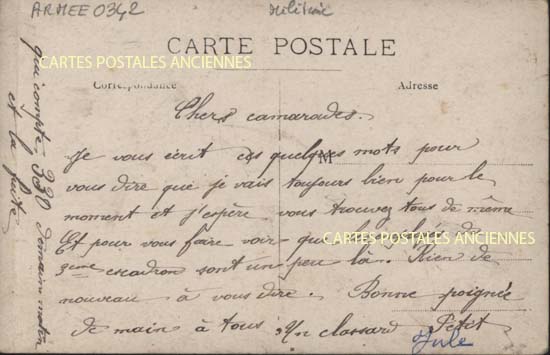 ARMEE 0342
Militaire
CARTE POSTALE
CARTES POSTALES ANCIENNES
Correspondance
Adresse
Chers camarades.
M
Je vous écrit ces quelques mots pour
vous dire que je vais toujours bien pour le
moment et j'espère vous trouvez tous de même
Et pour vous faire voir que les de
CARTES POSTALES ANCIENNES
3eme escadron sont un peu là. Rien de
nouveau à vous dire. Bonne poignée
de main à tous. Un classard Petit
Jule
qui compte 330 demain matin
et la fuite